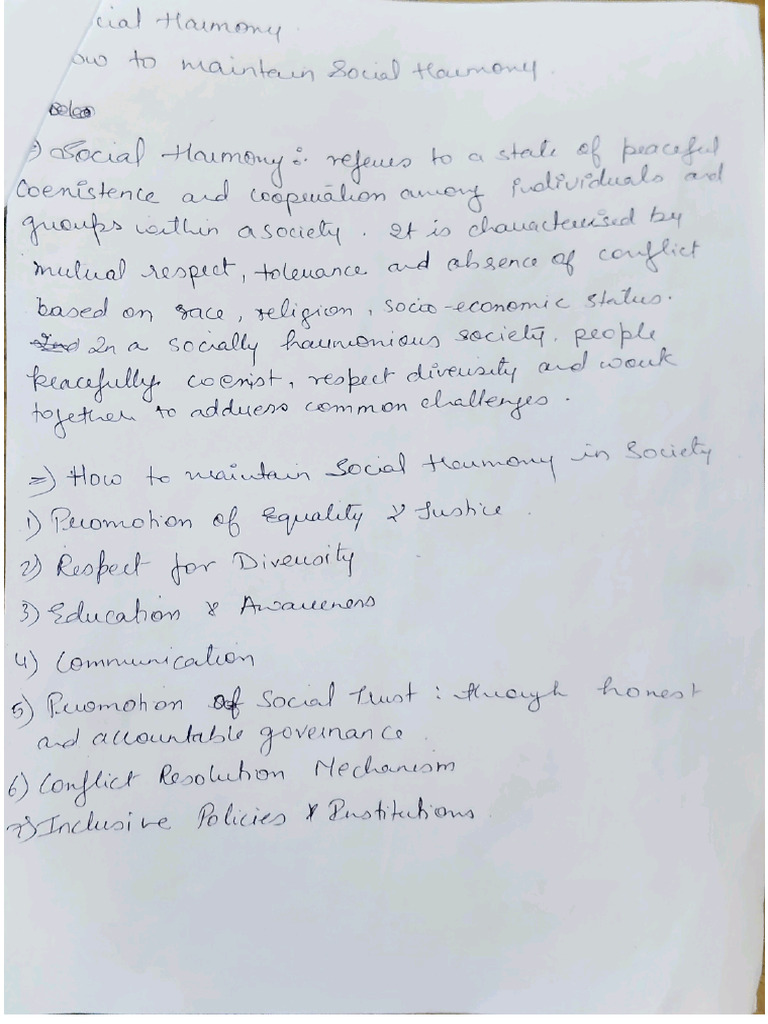 cial Harmony.
ow to maintain Social Harmony.
=) Social Harmony : referes to a state of peaceful
Coexistence and cooperation among individuals and
groups within a society. It is characterised by
mutual respect, tolerance and absence of conflict
based on race, religion, socio-economic status.
In a socially harmonious society, people
peacefully coexist, respect diversity and work
together to address common challenges.
=) How to maintain Social Harmony in Society
1) Promotion of Equality & Justice.
2) Respect for Diversity
3) Education & Awareness
4) Communication
5) Promotion of Social Trust : through honest
and accountable governance.
6) Conflict Resolution Mechanism
7) Inclusive Policies & Institutions.